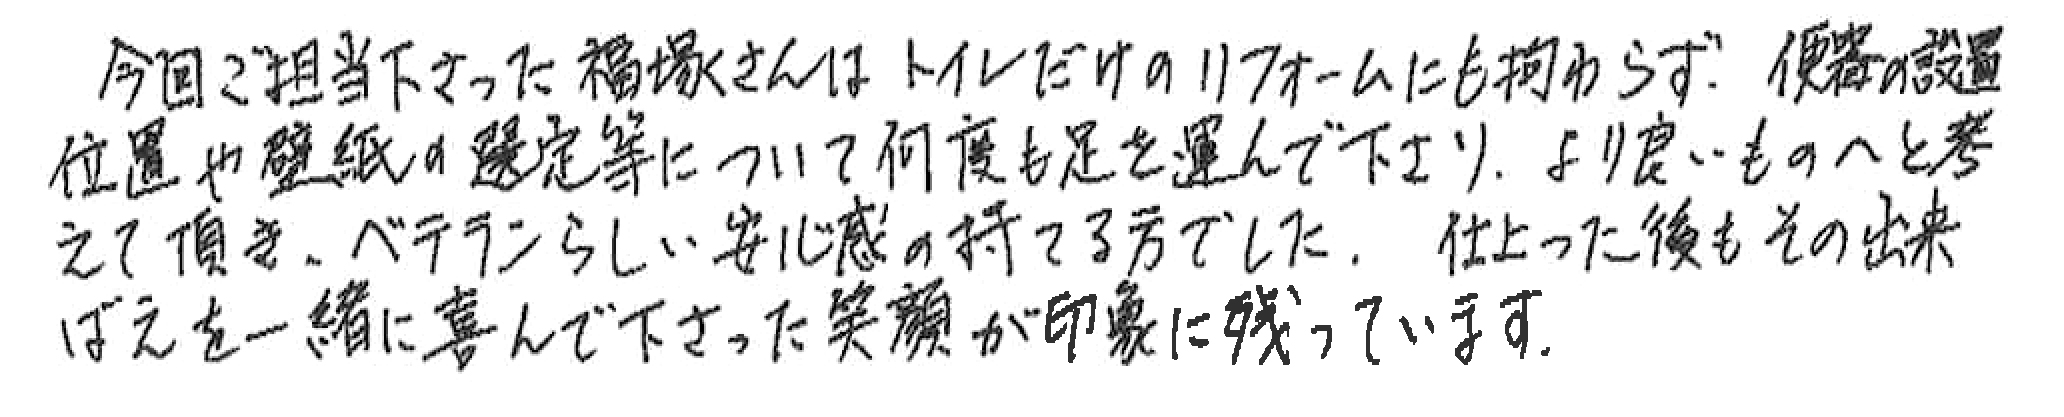 今回ご担当下さった福塚さんはトイレだけのリフォームにも拘わらず、便器の設置
位置や壁紙の選定等について何度も足を運んで下さり、より良いものへと考
えて頂き、ベテランらしい安心感の持てる方でした。仕上った後もその出来
ばえを一緒に喜んで下さった笑顔が印象に残っています。